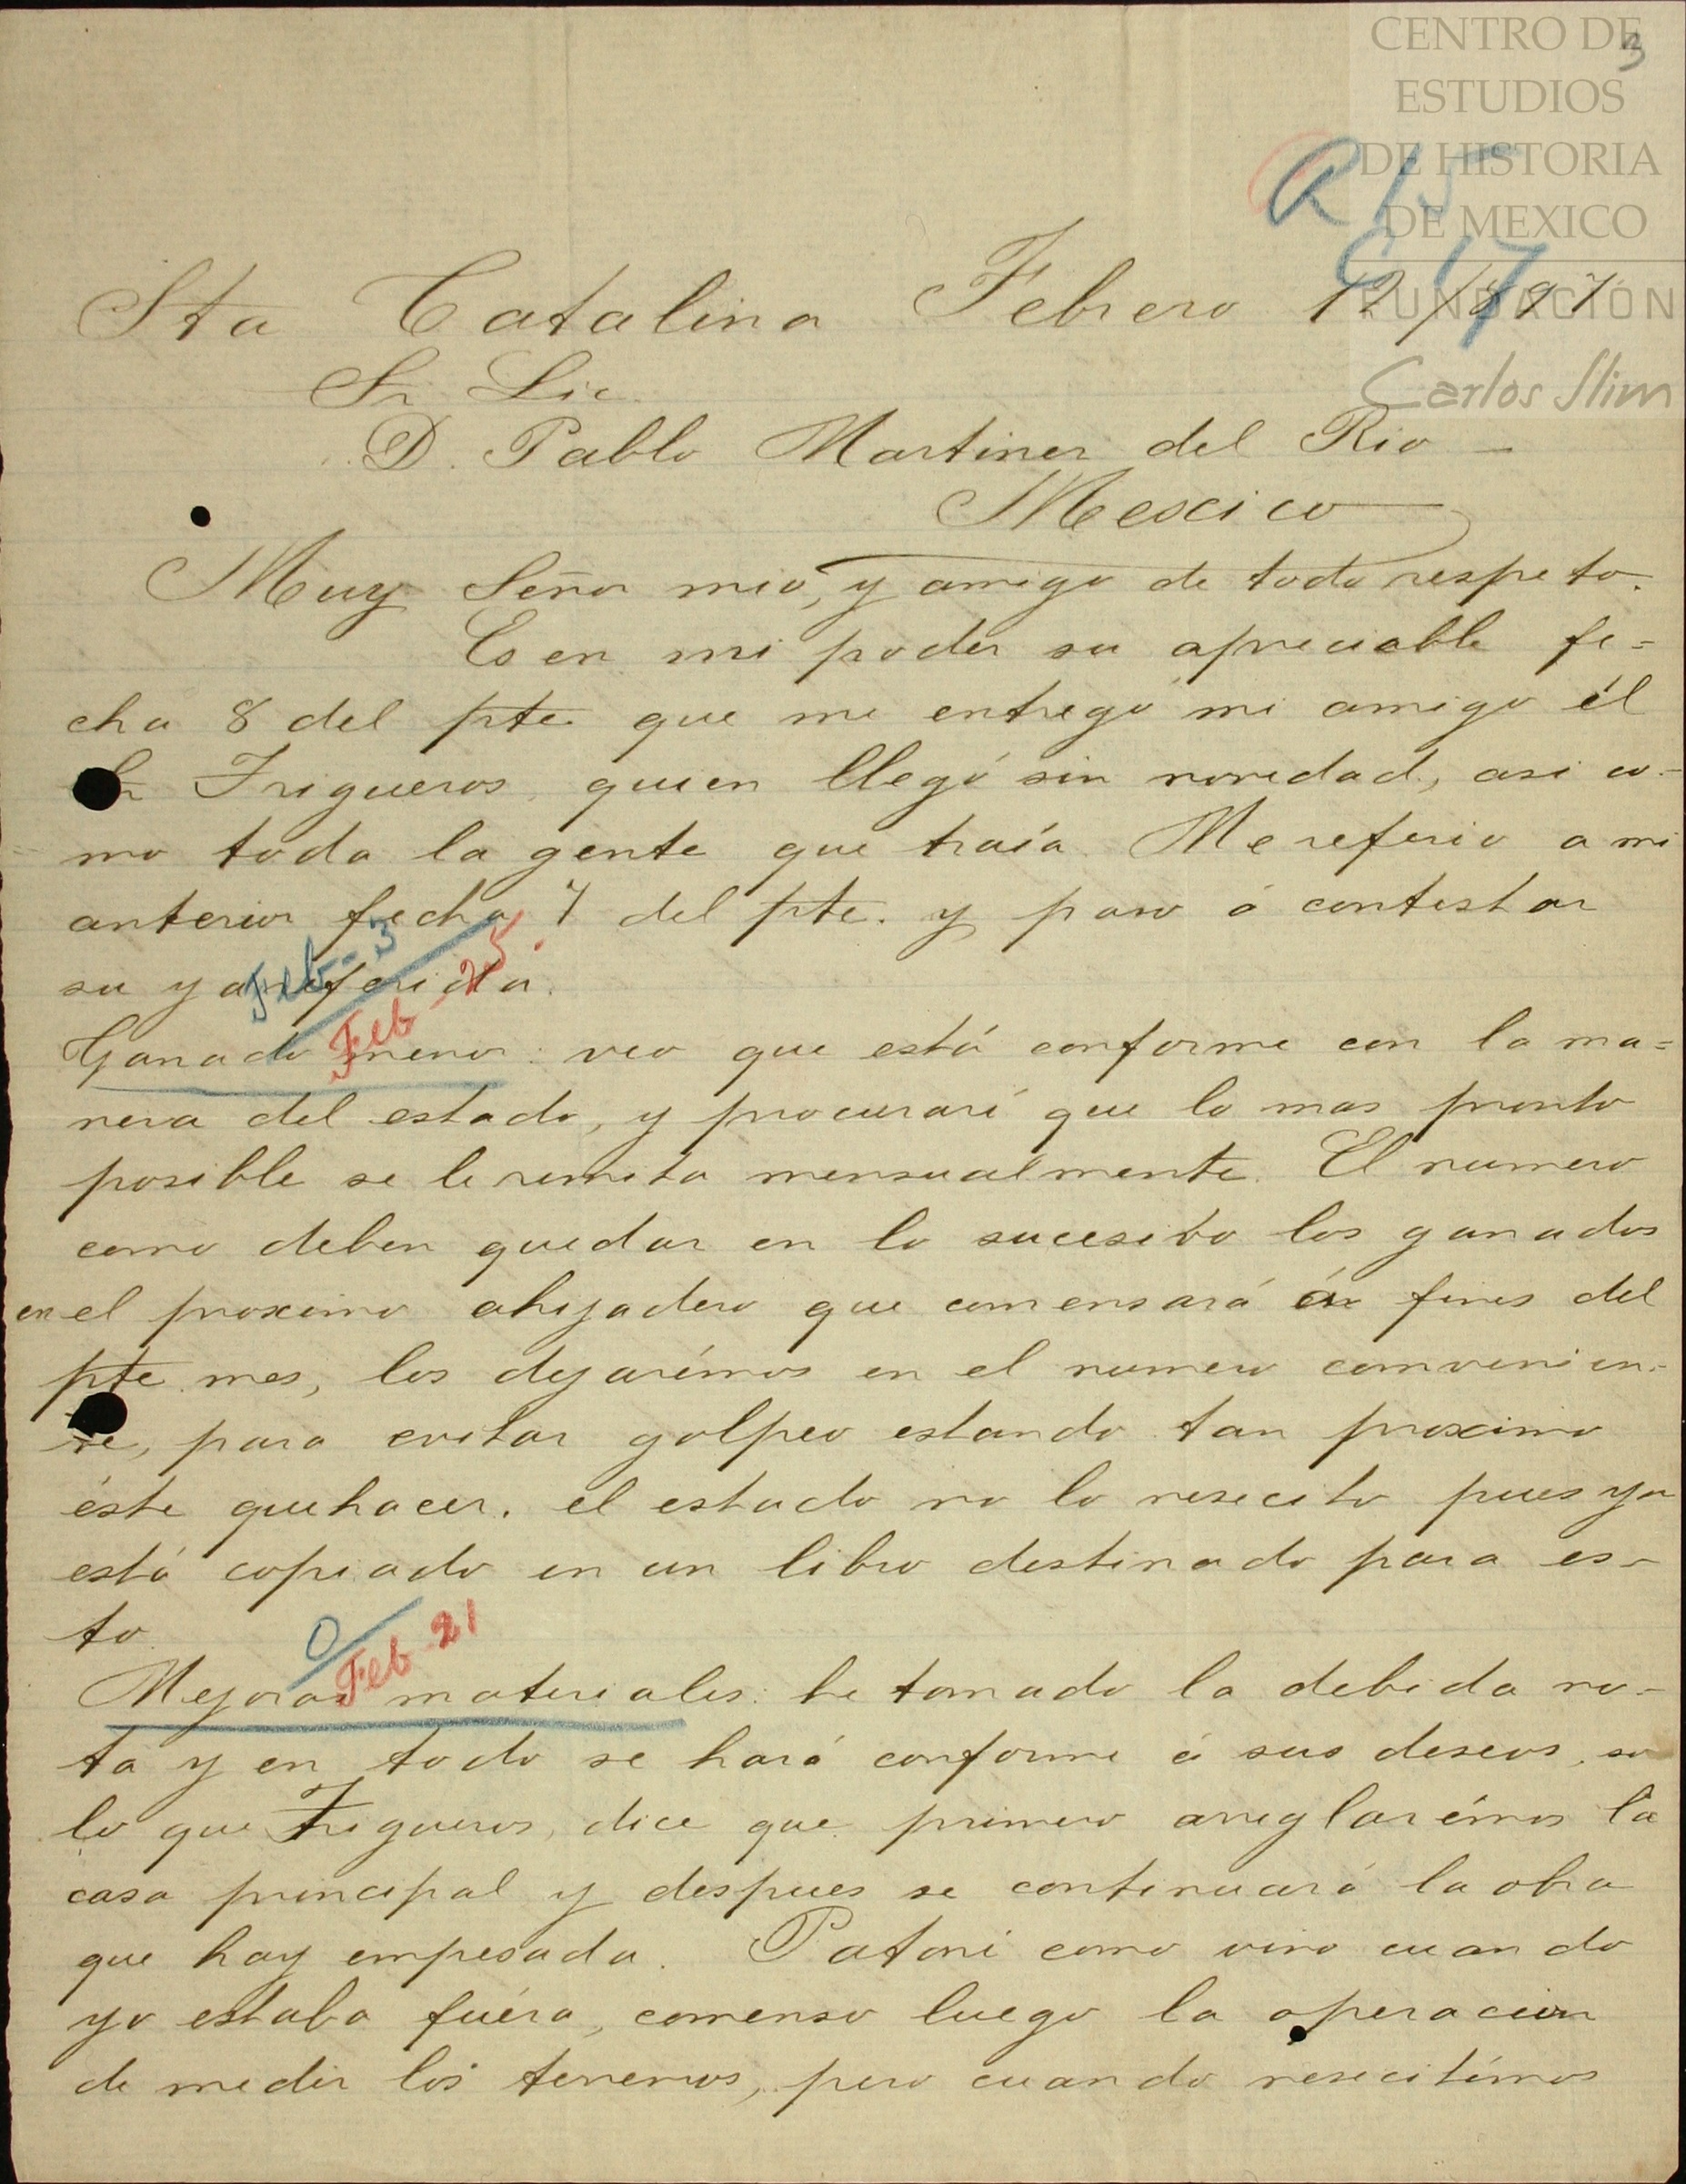 CENTRO DE
ESTUDIOS
DE HISTORIA
DE MEXICO
FUNDACIÓN
Carlos Slim
3
R 15
C 17
Sta Catalina Febrero 12/897
Sr. Lic.
D. Pablo Martinez del Rio
Mexico
Muy Señor mio, y amigo de todo respeto.
Es en mi poder su apreciable fe=
cha 8 del pte. que me entregó mi amigo él
Sr Trigueros, quien llegó sin novedad, asi co-
mo toda la gente que traía. Me referio a mi
anterior fecha 7 del pte. y paso á contestar
su ya referida.
Feb-3
Feb-25.
Ganado menor: veo que está conforme con la ma=
nera del estado, y procuraré que lo mas pronto
posible se le remita mensualmente. El numero
como deben quedar en lo sucesibo los ganados
en el proximo ahijadero que comensará á fines del
pte. mes, los dejarémos en el numero comvenien-
te, para evitar golpeo estando tan proximo
éste quehacer. el estado no lo resecito pues ya
está copiado en un libro destinado para es-
to
0
Feb 21
Mejoras materiales: he tomado la debida no-
ta y en todo se hará conforme á sus deseos, so
lo que Trigueros, dice que primero arreglarémos la
casa principal y despues se continuará la obra
que hay empesada. Patoni como vino cuando
yo estaba fuéra, comenso luego la operacion
de medir los terrenos, pero cuando resecitémos